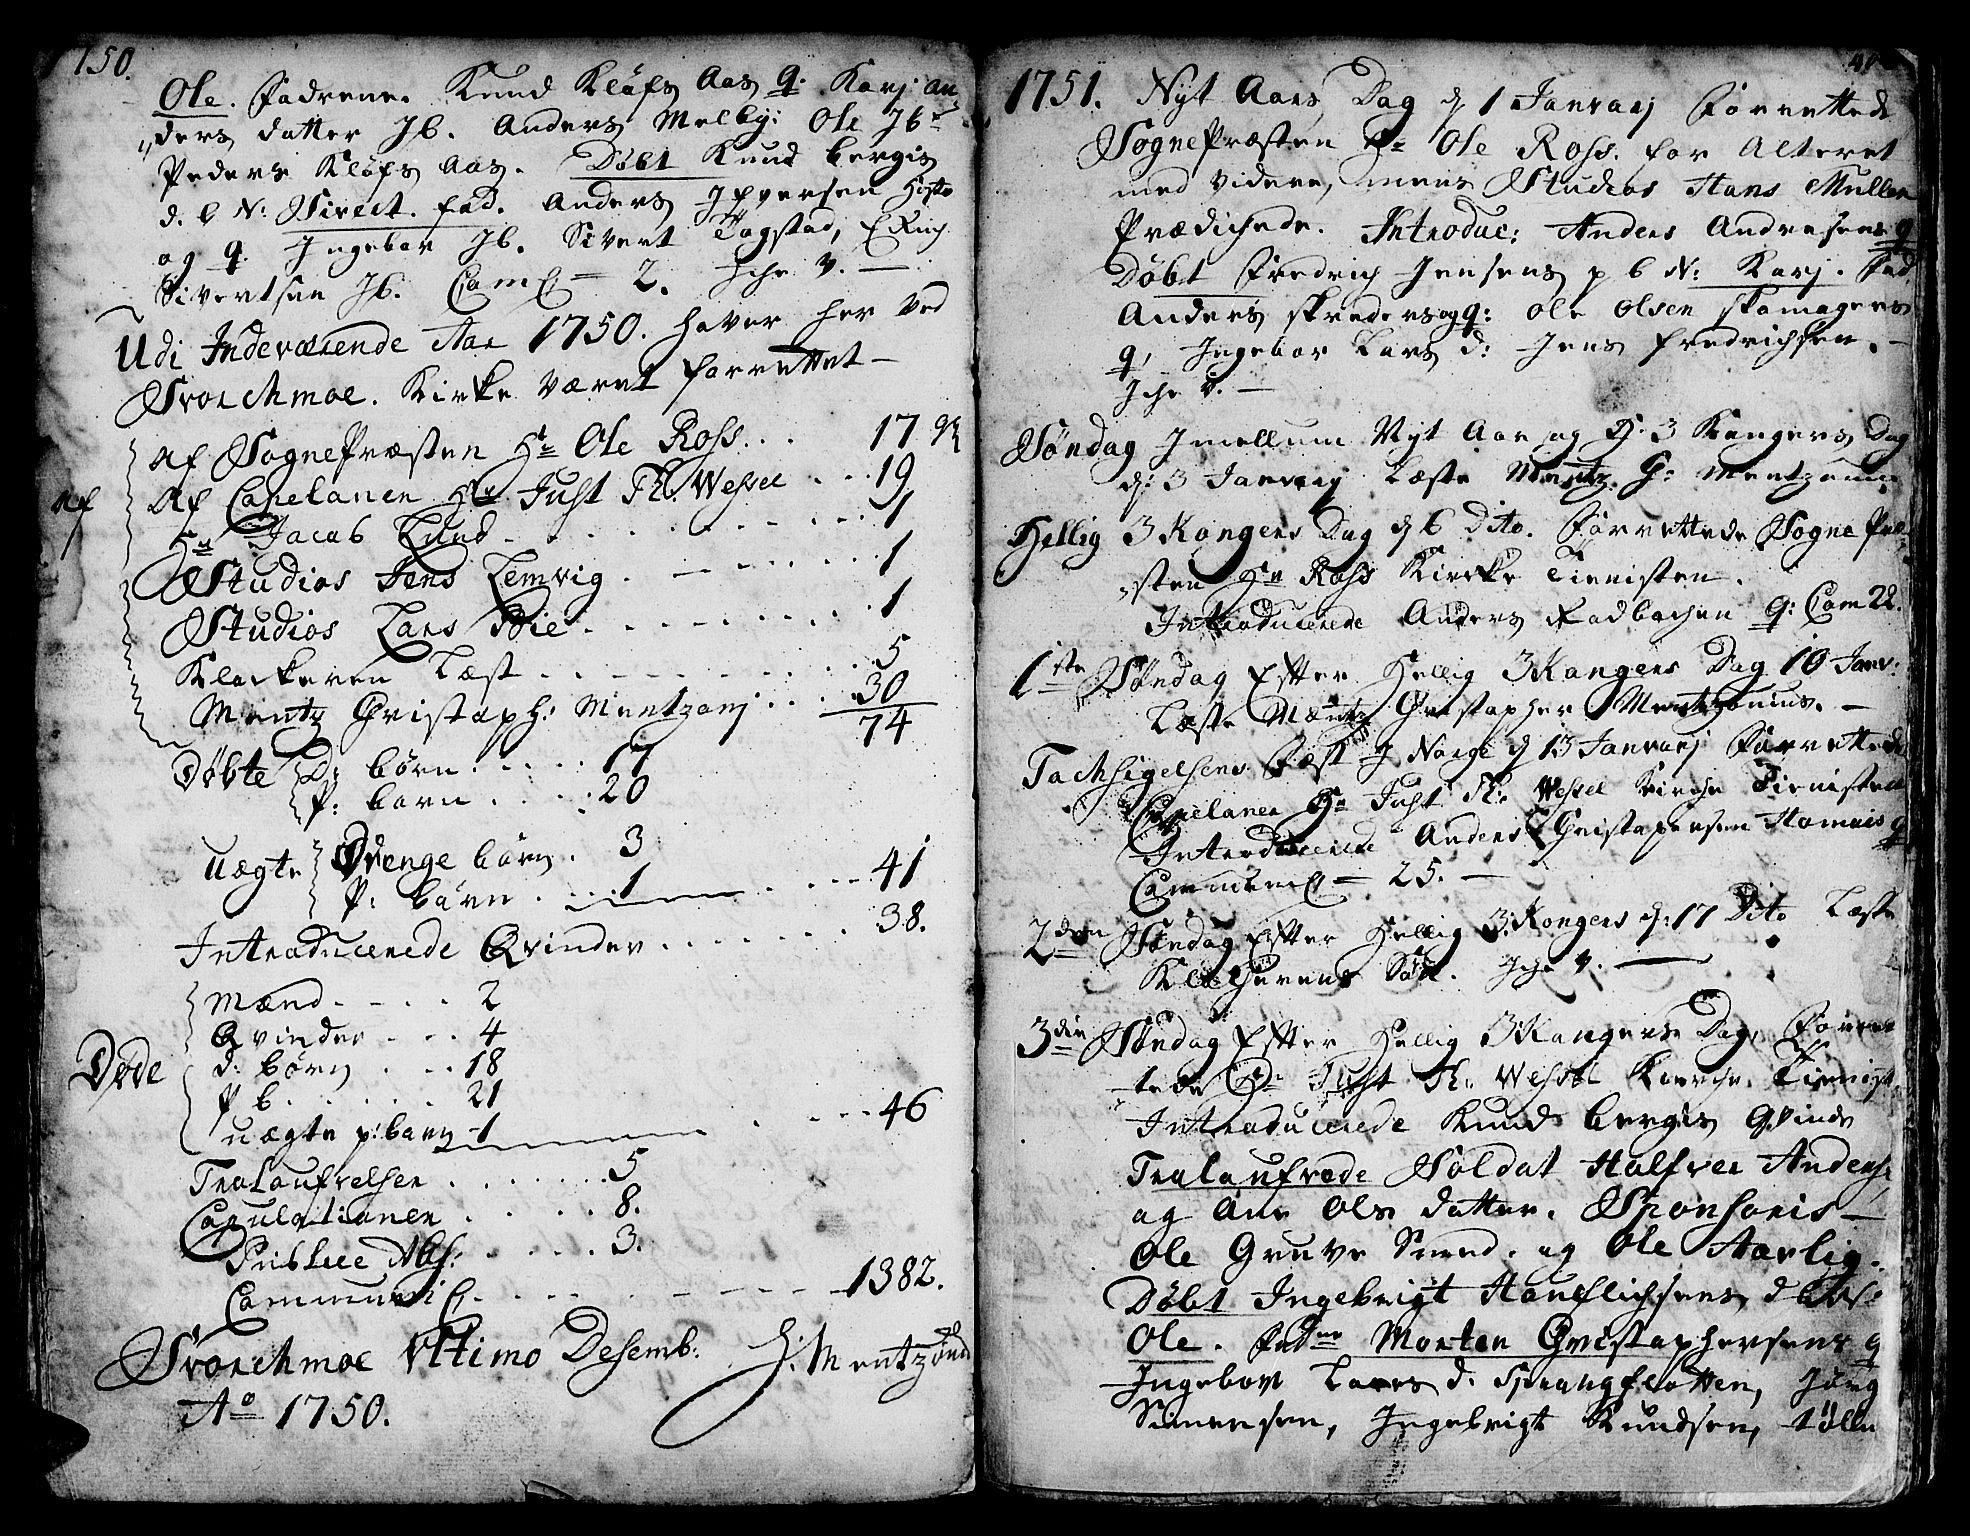 1750.
Ole. Fadrene. Knud Kløfs Aas q. Karj an
ders datter Jb. Anders Melby: Ole Jb
Peders Kløfs Aas. Døbt Knud bergis
d. b N: Sivert. fad. Anders Jfversen
og q. Ingebor Jb. Sivert Togstad,
Sivertsen Jb. Com — 2. Iche v. —
Udi Indeværende Aar 1750. haver her ved
Svorchmoe. Kirke været forrettet —
Af SognePræsten Hr Ole Ross... 17
Af Af Capelanen Hr Just Th. Wessel ... 19
Hr Jacob Lund . . . 1
Studios Jens Lemvig . . . 1
Studios Lars Bie . . . 1
Klockeren Læst . . . 5
Mentz Christoph: Mentzonj ... 30
74
Døbte D: børn ..... 17
P: børn .... 20
Uægte Drenge børn . 3
P: børn . . . 1 . . . 41
Introducerede Qvinder ....... 38.
Mænd .... 2
Qvinder ... 4
Døde d: børn ... 18
P b. .... 21
uægte p: børn 1 . . . 46
Troloufvelsen ....... 5
Copulationen ..... 8.
Publice Abs: ..... 3.
Communic . . . 1382.
Svorchmoe Ultimo Desemb: H: Mentzoni
Ao 1750.
1751. Nyt Aars Dag d 1 Janvarj Forrettede
SognePræsten Hr Ole Ross. for Alteret
med videre, mens Studios Hans Muller
Prædichede. Introduc: Anders Andresens q
Døbt Fredrich Jensens p b N: Karj. Fad
Anders skreders og q: Ole Olsen skomagers
q, Ingebor Lars d: Jens fredrichsen. —
Iche v. —
Søndag Imellum Nyt Aar og H. 3 Kongers Dag
d: 3 Janvarj Læste Mentz G: Mentzonius
Hellig 3 Kongers Dag d 6 Dito. Forrettede Sogne Præ
sten Hr Ross Kirke Tienisten.
Introducerede Anders Fadbachen q: Com 22.
1ste Søndag Efter Hellig 3 Kongers Dag 10 Janv:
Læste Mentz Christopher Mentzonius. —
Tachsigelsens Fæst J Norge d 13 Janvarj Forrettede
Capelanen Hr Just Th: Wessel Kirche Tienisten
Introducerede Anders Christopersen Homnis q
Communic — 25. —
2den Søndag Efter Hellig 3 Kongers d: 17 Dito Læste
Klocherens Søn. Iche v. —
3die Søndag Efter Hellig 3 Kongers Dag, Forret
tede Hr Just Th: Wessel Kirche Tienist.
Introducerede Knud bergis Qvinde
Troloufvede Soldat Halfvor Anders:
og Ane Ols datter. Sponsoris —
Ole Gruve Smed. og Ole Aarlig.
Døbt Ingebrigt Hansichsens d b N:
Ole. Fadrne Morten Christophersens q
Ingebor Lars d. Sprangfløtten, Jørg
Simensen, Ingebrigt Knudsen, tølle